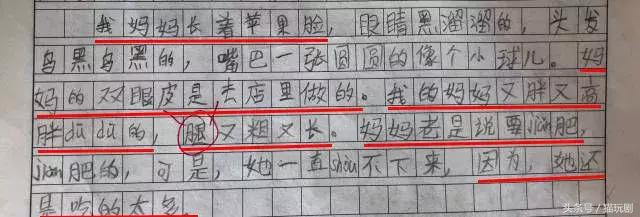 我妈妈长着苹果脸，眼睛黑溜溜的，头发
乌黑乌黑的，嘴巴一张圆圆的像个小球儿。妈
妈的双眼皮是去店里做的。我的妈妈又胖又高
胖dūdū的，腿又粗又长。妈妈老是说要jiǎn肥，
jiǎn肥的，可是，她一直shòu不下来，因为，她还
是吃的太多。
头条号／猫玩剧